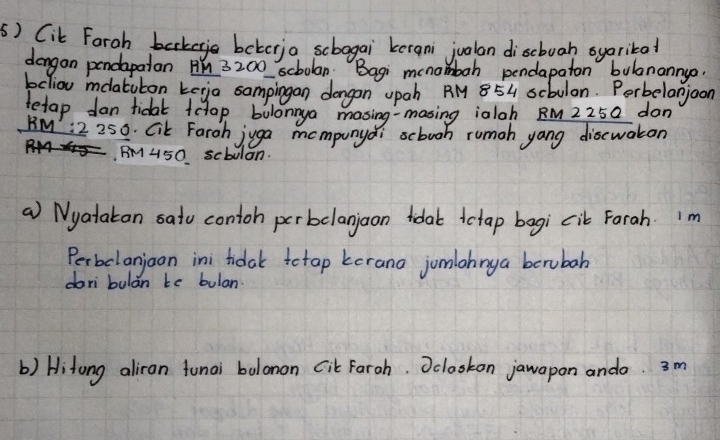 5) Cik Farah bekerja bekerja sebagai kerani jualan di sebuah syarikat
dengan pendapatan RM 3200 sebulan. Bagi menambah pendapatan bulanannya,
beliau melakukan kerja sampingan dengan upah RM 854 sebulan. Perbelanjaan
tetap dan tidak tetap bulannya masing-masing ialah RM 2250 dan
RM :2 250. Cik Farah juga mempunyai sebuah rumah yang disewakan
RM 45 RM 450 sebulan.
a) Nyatakan satu contoh perbelanjaan tidak tetap bagi cik Farah. 1m
Perbelanjaan ini tidak tetap kerana jumlahnya berubah
dari bulan ke bulan.
b) Hitung aliran tunai bulanan Cik Farah. Jelaskan jawapan anda. 3m